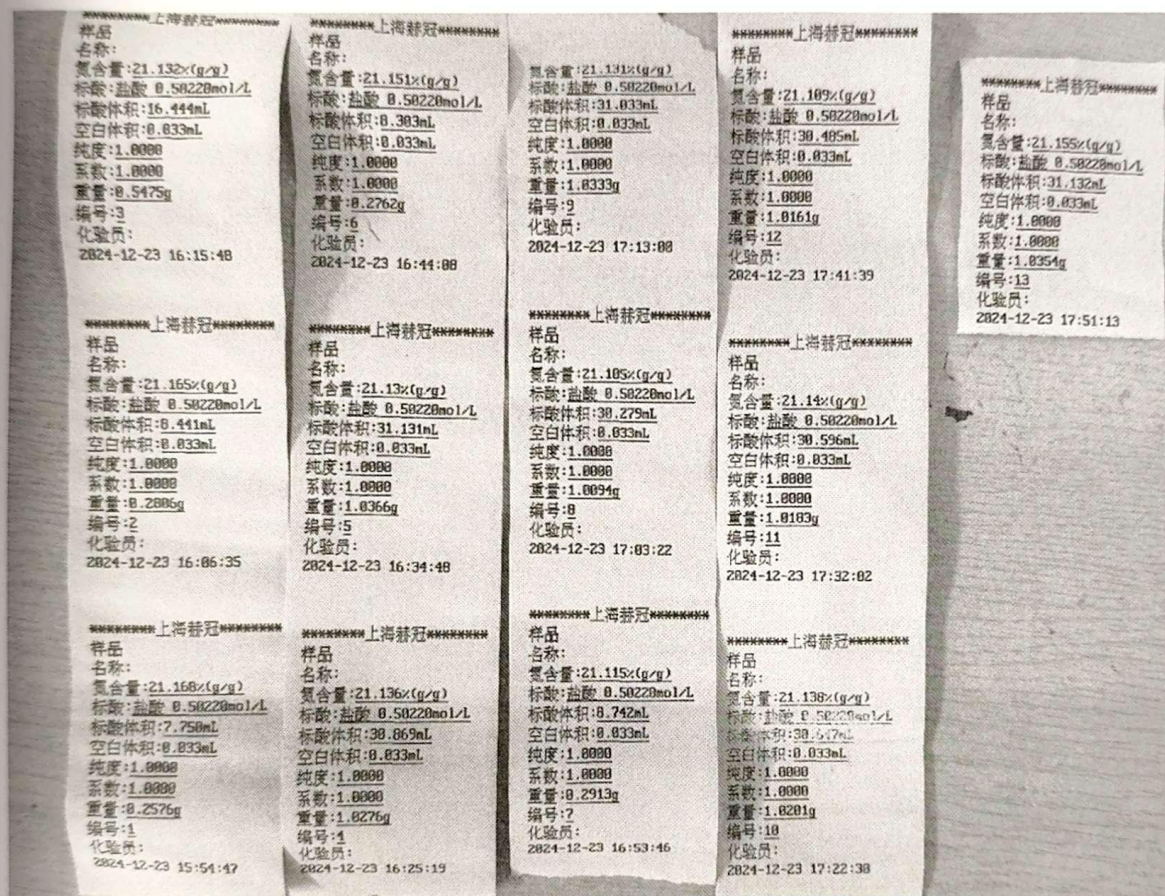 ********上海赫冠********
样品
名称:
氮含量:21.132%(g/g)
标酸:盐酸 0.50220mol/L
标酸体积:16.444mL
空白体积:0.033mL
纯度:1.0000
系数:1.0000
重量:0.5475g
编号:3
化验员:
2024-12-23 16:15:48
********上海赫冠********
样品
名称:
氮含量:21.165%(g/g)
标酸:盐酸 0.50220mol/L
标酸体积:8.441mL
空白体积:0.033mL
纯度:1.0000
系数:1.0000
重量:0.2806g
编号:2
化验员:
2024-12-23 16:06:35
********上海赫冠********
样品
名称:
氮含量:21.168%(g/g)
标酸:盐酸 0.50220mol/L
标酸体积:7.750mL
空白体积:0.033mL
纯度:1.0000
系数:1.0000
重量:0.2576g
编号:1
化验员:
2024-12-23 15:54:47
********上海赫冠********
样品
名称:
氮含量:21.151%(g/g)
标酸:盐酸 0.50220mol/L
标酸体积:8.303mL
空白体积:0.033mL
纯度:1.0000
系数:1.0000
重量:0.2762g
编号:6
化验员:
2024-12-23 16:44:08
********上海赫冠********
样品
名称:
氮含量:21.13%(g/g)
标酸:盐酸 0.50220mol/L
标酸体积:31.131mL
空白体积:0.033mL
纯度:1.0000
系数:1.0000
重量:1.0366g
编号:5
化验员:
2024-12-23 16:34:48
********上海赫冠********
样品
名称:
氮含量:21.136%(g/g)
标酸:盐酸 0.50220mol/L
标酸体积:30.869mL
空白体积:0.033mL
纯度:1.0000
系数:1.0000
重量:1.0276g
编号:4
化验员:
2024-12-23 16:25:19
氮含量:21.131%(g/g)
标酸:盐酸 0.50220mol/L
标酸体积:31.033mL
空白体积:0.033mL
纯度:1.0000
系数:1.0000
重量:1.0333g
编号:9
化验员:
2024-12-23 17:13:00
********上海赫冠********
样品
名称:
氮含量:21.105%(g/g)
标酸:盐酸 0.50220mol/L
标酸体积:30.279mL
空白体积:0.033mL
纯度:1.0000
系数:1.0000
重量:1.0094g
编号:8
化验员:
2024-12-23 17:03:22
********上海赫冠********
样品
名称:
氮含量:21.115%(g/g)
标酸:盐酸 0.50220mol/L
标酸体积:8.742mL
空白体积:0.033mL
纯度:1.0000
系数:1.0000
重量:0.2913g
编号:7
化验员:
2024-12-23 16:53:46
********上海赫冠********
样品
名称:
氮含量:21.109%(g/g)
标酸:盐酸 0.50220mol/L
标酸体积:30.485mL
空白体积:0.033mL
纯度:1.0000
系数:1.0000
重量:1.0161g
编号:12
化验员:
2024-12-23 17:41:39
********上海赫冠********
样品
名称:
氮含量:21.14%(g/g)
标酸:盐酸 0.50220mol/L
标酸体积:30.596mL
空白体积:0.033mL
纯度:1.0000
系数:1.0000
重量:1.0183g
编号:11
化验员:
2024-12-23 17:32:02
********上海赫冠********
样品
名称:
氮含量:21.138%(g/g)
标酸:盐酸 0.50220mol/L
标酸体积:30.647mL
空白体积:0.033mL
纯度:1.0000
系数:1.0000
重量:1.0201g
编号:10
化验员:
2024-12-23 17:22:30
********上海赫冠********
样品
名称:
氮含量:21.155%(g/g)
标酸:盐酸 0.50220mol/L
标酸体积:31.132mL
空白体积:0.033mL
纯度:1.0000
系数:1.0000
重量:1.0354g
编号:13
化验员:
2024-12-23 17:51:13